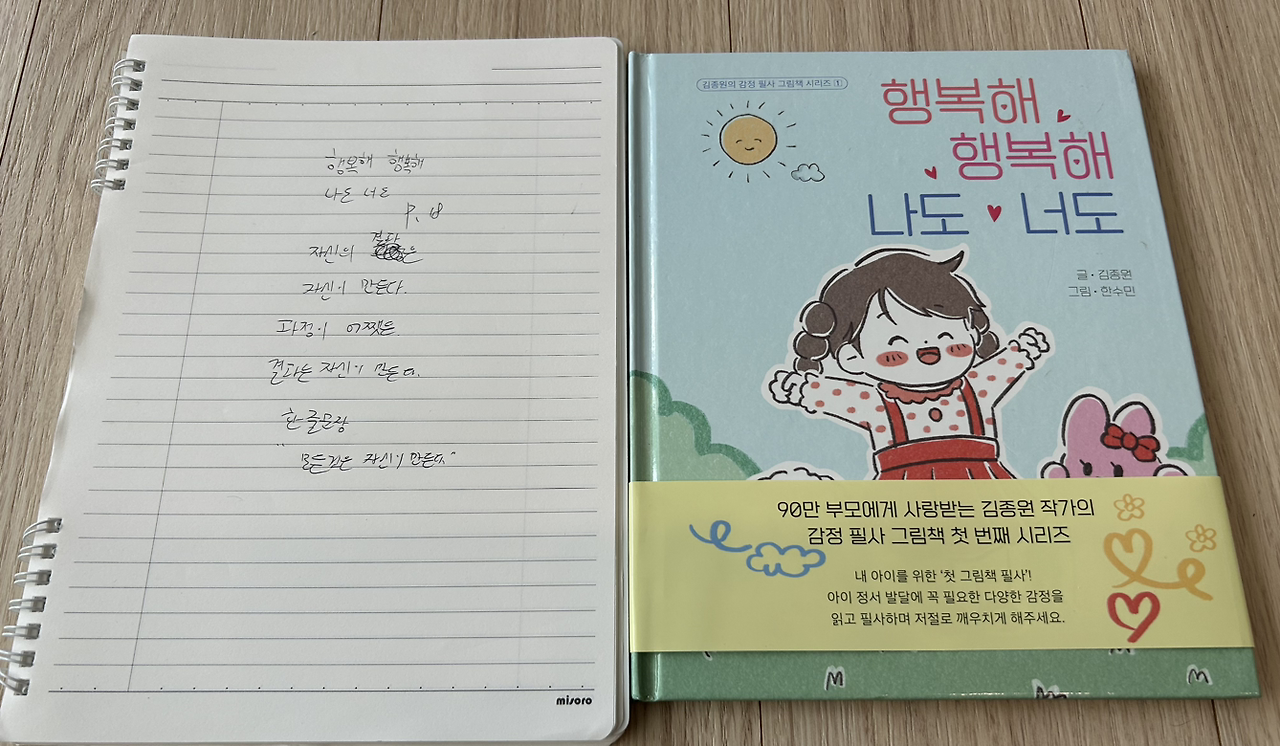 행복해 행복해
나도 너도
P. 18
자신의 결과은
자신이 만든다.
과정이 어쨌든
결과는 자신이 만든다.
한글문장
"모든것은 자신이 만든다"
misoro
김종원의 감정 필사 그림책 시리즈 1
행복해
행복해
나도 너도
글·김종원
그림·한수민
90만 부모에게 사랑받는 김종원 작가의
감정 필사 그림책 첫 번째 시리즈
내 아이를 위한 '첫 그림책 필사'!
아이 정서 발달에 꼭 필요한 다양한 감정을
읽고 필사하며 저절로 깨우치게 해주세요.